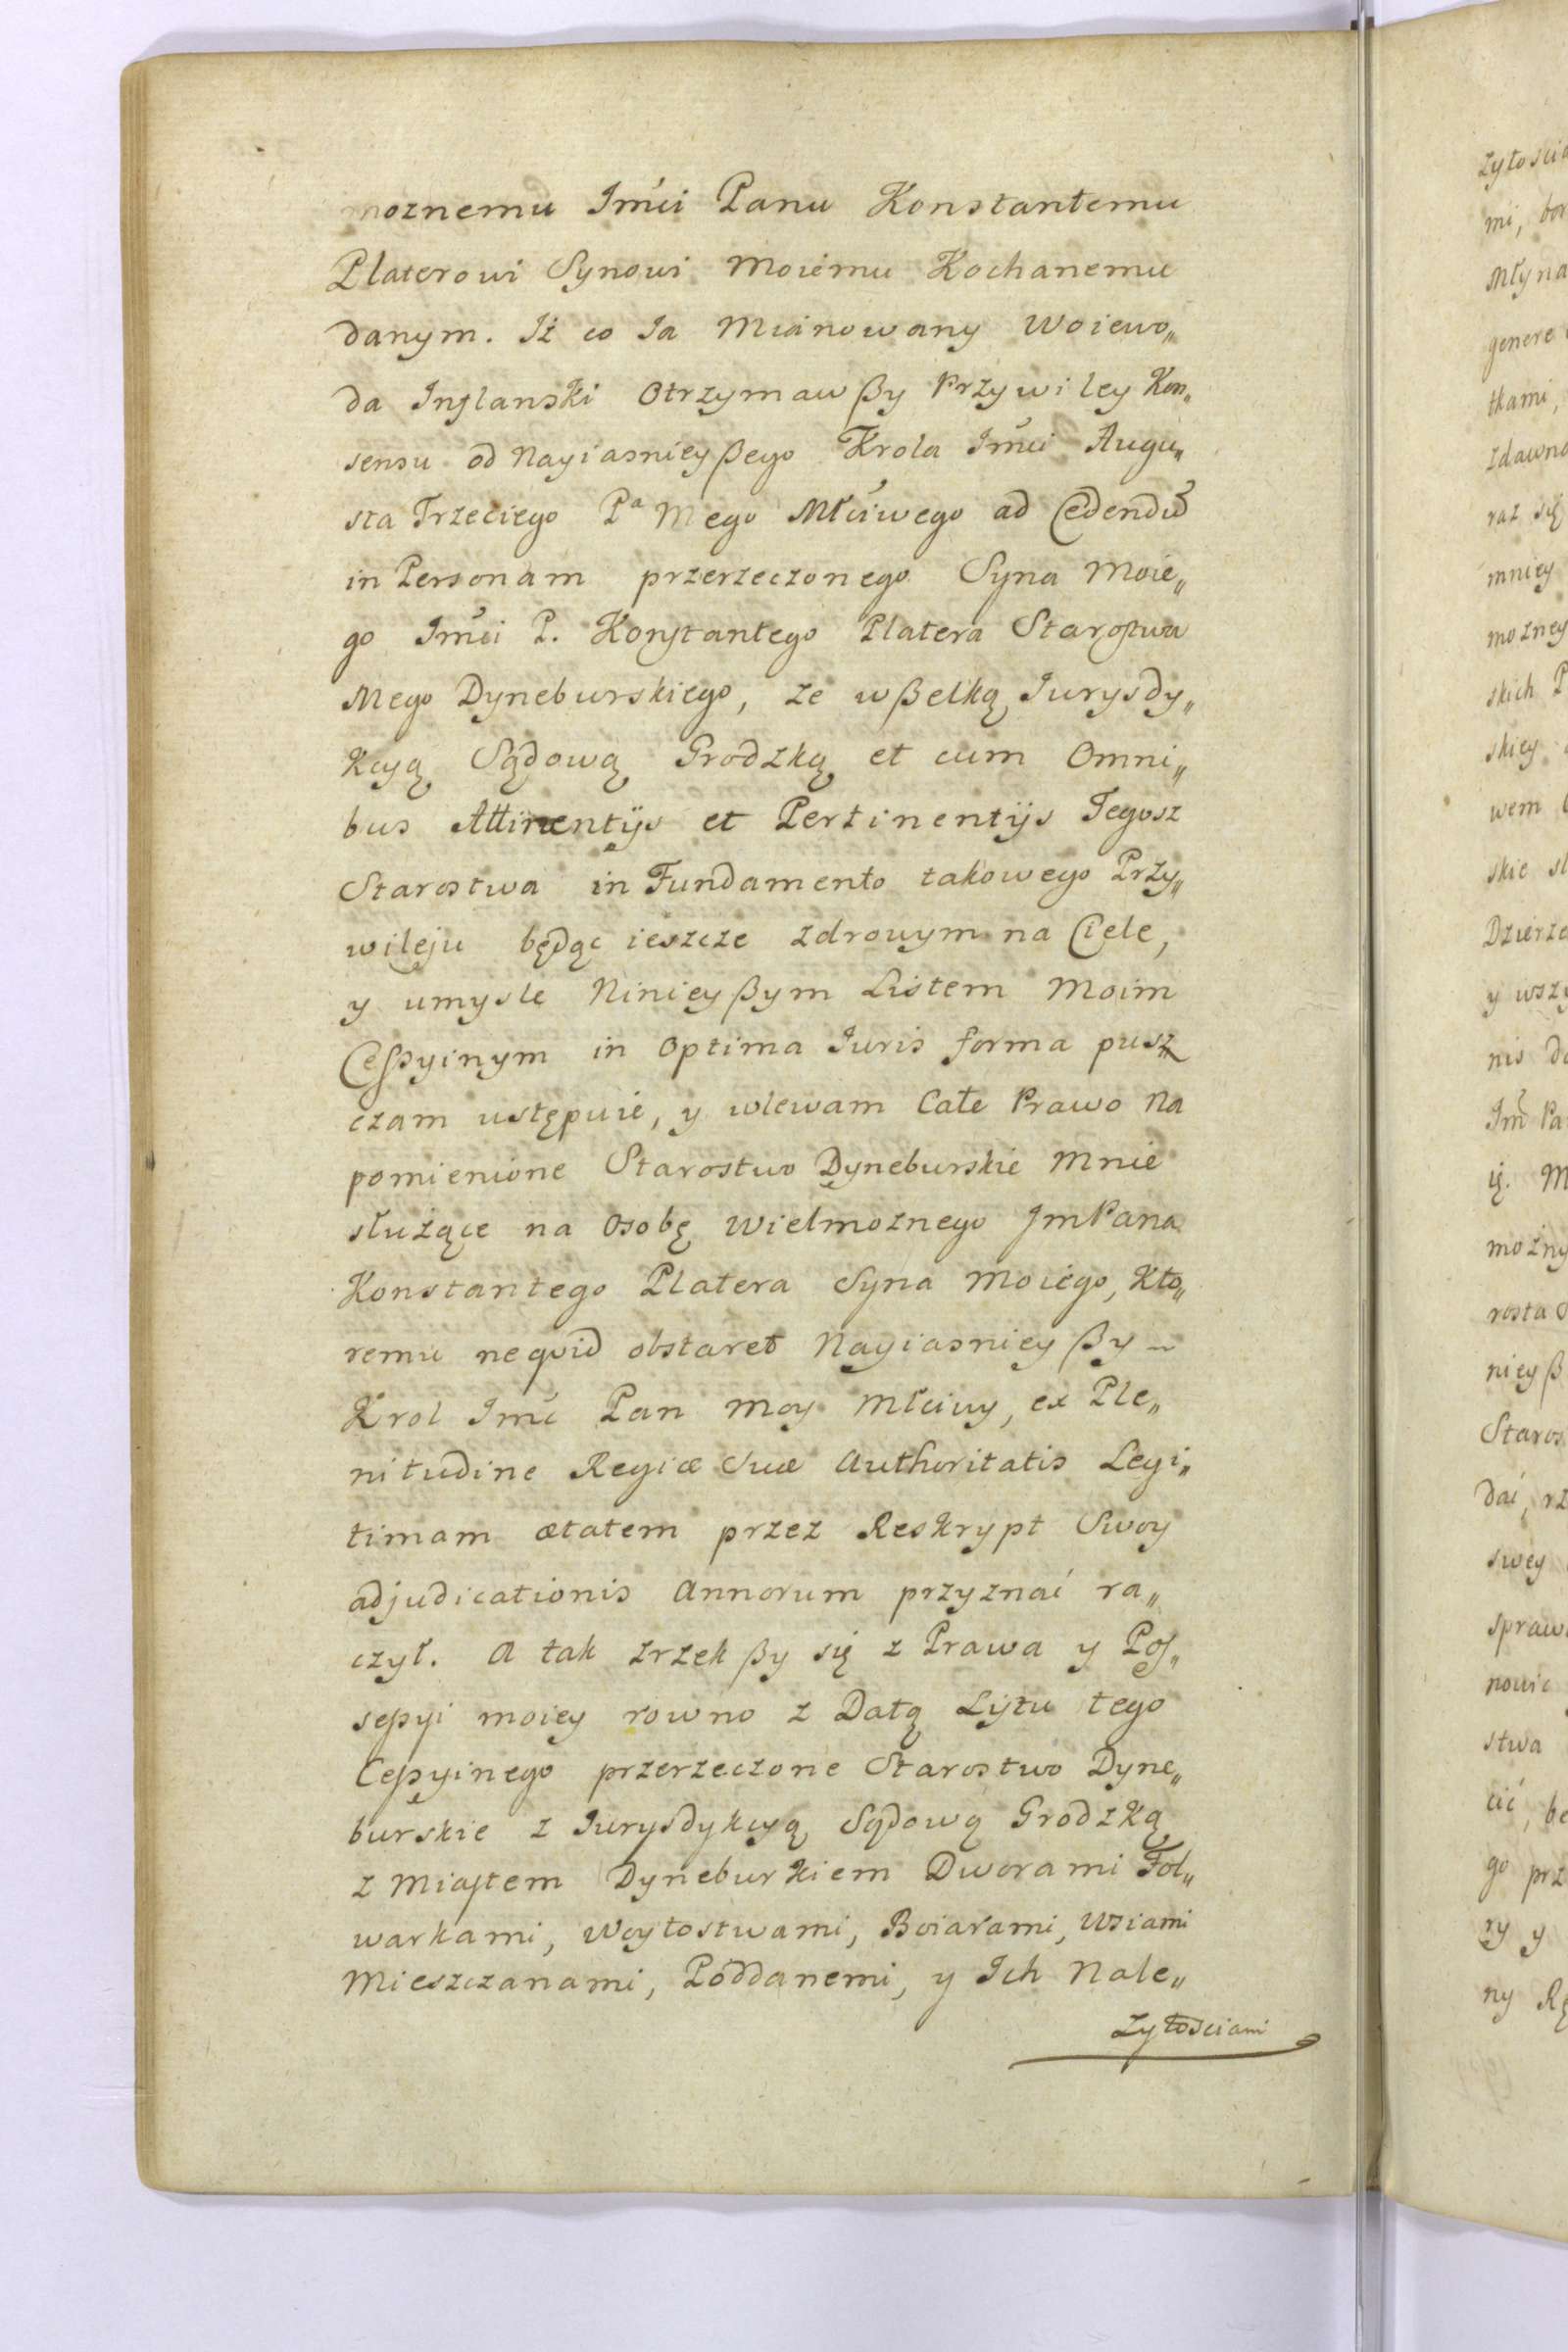 moznemu Jmći Panu Konstantemu
Platerowi Synowi Moiemu Kochanemu
danym. Iż co Ja Mianowany Woiewo„
da Inflanski Otrzymawßy Przywiley Kon„
sensu od Nayiasnieyßego Krola Jmći Augu„
sta Trzeciego Pª Mego Młćiwego ad Cedendū
in Personam przerzeczonego Syna Moie„
go Jmći P. Konstantego Platera Starostwa
Mego Dyneburskiego, ze wßelką Jurysdy„
kcyą Sądową Grodzką et cum Omni„
bus Attinentijs et Pertinentijs Tegosz
Starostwa in Fundamento takowego Przy„
wileju będąc ieszcze zdrowym na Ciele,
y umysle Ninieyßym Listem Moim
Cessyinym in Optima Juris forma pusz„
czam ustępuie, y wlewam Całe Prawo na
pomienione Starostwo Dyneburskie Mnie
służące na Osobę Wielmoznego JmPana
Konstantego Platera Syna Moiego, Kto„
remu ne quid obstaret Nayiasnieyßy
Krol Jmć Pan Moy Młciwy, ex Ple„
nitudine Regiæ Suæ Authoritatis Legi„
timam ætatem przez Reskrypt Swoy
adjudicationis Annorum przyznać ra„
czył. A tak zrzekßy się z Prawa y Pos„
sessyi moiey rowno z Datą Lystu tego
Cessyinego przerzeczone Starostwo Dyne„
burskie z Jurysdykcyą Sądową Grodzką
z Miastem Dyneburkiem Dworami Fol„
warkami, Woytostwami, Boiarami, Wsiami
Mieszczanami, Poddanemi, y Ich Nale„
zytościami
zytościa
mi, bor
Młyna
genere
tkami,
zdawna
raz się
mniey
mozney
skich P
skiey
wem
skie
Dzierza
y wszy
nis
Jm̃ Pa
ię. M
możny
rosta
nieyß
Staros
dać, rz
swey
spraw
nowic
stwa
cić, be
go prz
ry y
ny Rę